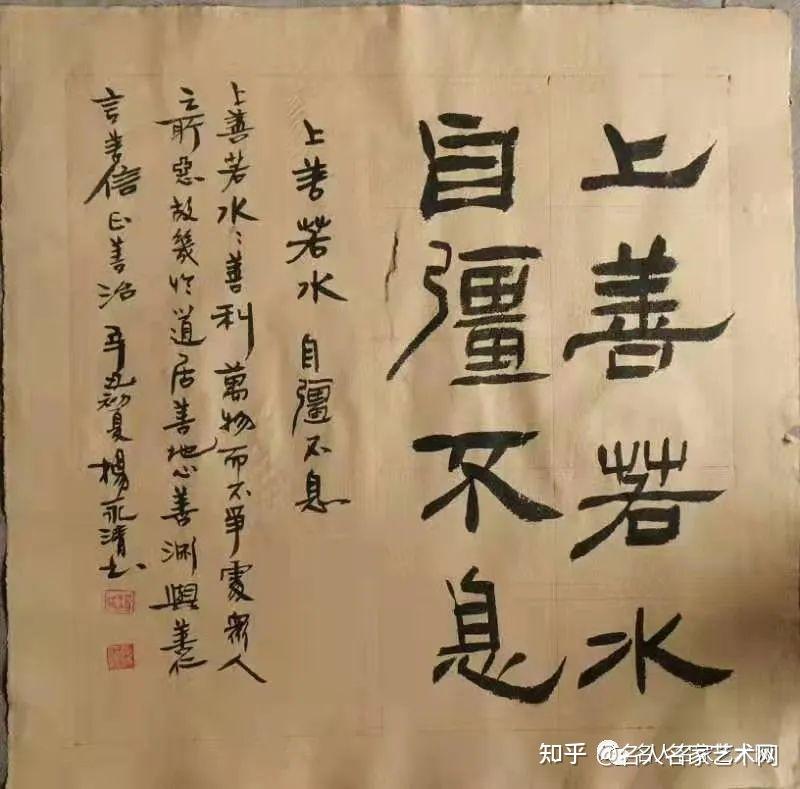 上善若水
自彊不息
上善若水 自彊不息
上善若水〻善利萬物而不爭處衆人
之所惡故幾於道居善地心善渊與善仁
言善信正善治 辛丑初夏 楊永清书
知乎 @名人名家艺术网